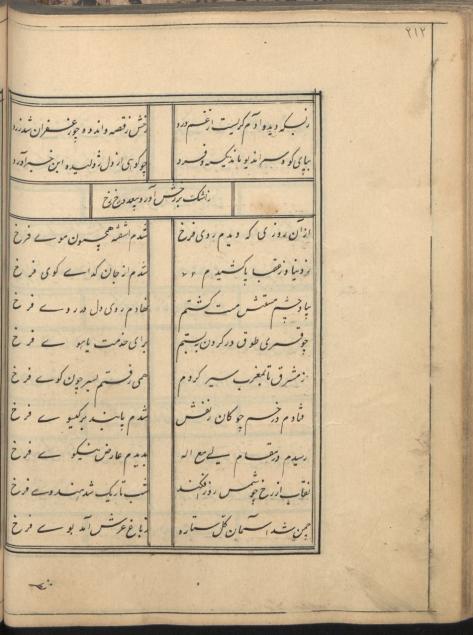 ۲۱۲
زبسکه دیده آدم گریست از غم درد رخش ز غصه و اندوه چو زعفران شد زرد
بپای کوه سراندیو چو کوهی از دل ژولیده این خبر آورد
از آن روزی که دیدم روی فرخ شدم آشفته همچون موے فرخ
ز دنیا و ز عقبا پا کشیدم شدم از جان گداے کوی فرخ
بیاد چشم مستش مست گشتم نهادم روی دل در روے فرخ
چو قمری طوق در گردن ببستم برای خدمت یاهوے فرخ
ز مشرق تا بمغرب سیر کردم همی رفتم بسر چون گوے فرخ
فتادم در خم چوگان زلفش شدم پابند بر گیسوے فرخ
رسیدم در مقام لی مع الله بدیدم عارض نیکوے فرخ
نقاب از رخ چو شمس روز افکند شب تاریک شد هندوے فرخ
چمن شد آسمان گل ستاره ز باغ عرش آمد بوے فرخ